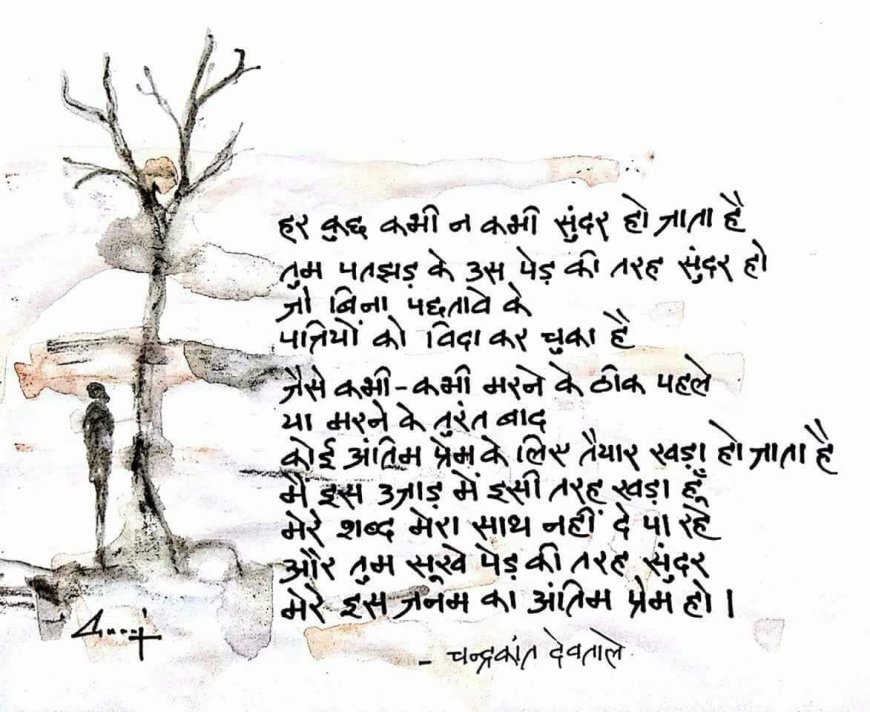 हर कुछ कभी न कभी सुंदर हो जाता है
तुम पतझड़ के उस पेड़ की तरह सुंदर हो
जो बिना पछतावे के
पत्तियों को विदा कर चुका है
जैसे कभी-कभी मरने के ठीक पहले
या मरने के तुरंत बाद
कोई अंतिम प्रेम के लिए तैयार खड़ा हो जाता है
मैं इस उजाड़ में इसी तरह खड़ा हूँ
मेरे शब्द मेरा साथ नहीं दे पा रहे
और तुम सूखे पेड़ की तरह सुंदर
मेरे इस जनम का अंतिम प्रेम हो।
- चन्द्रकांत देवताले